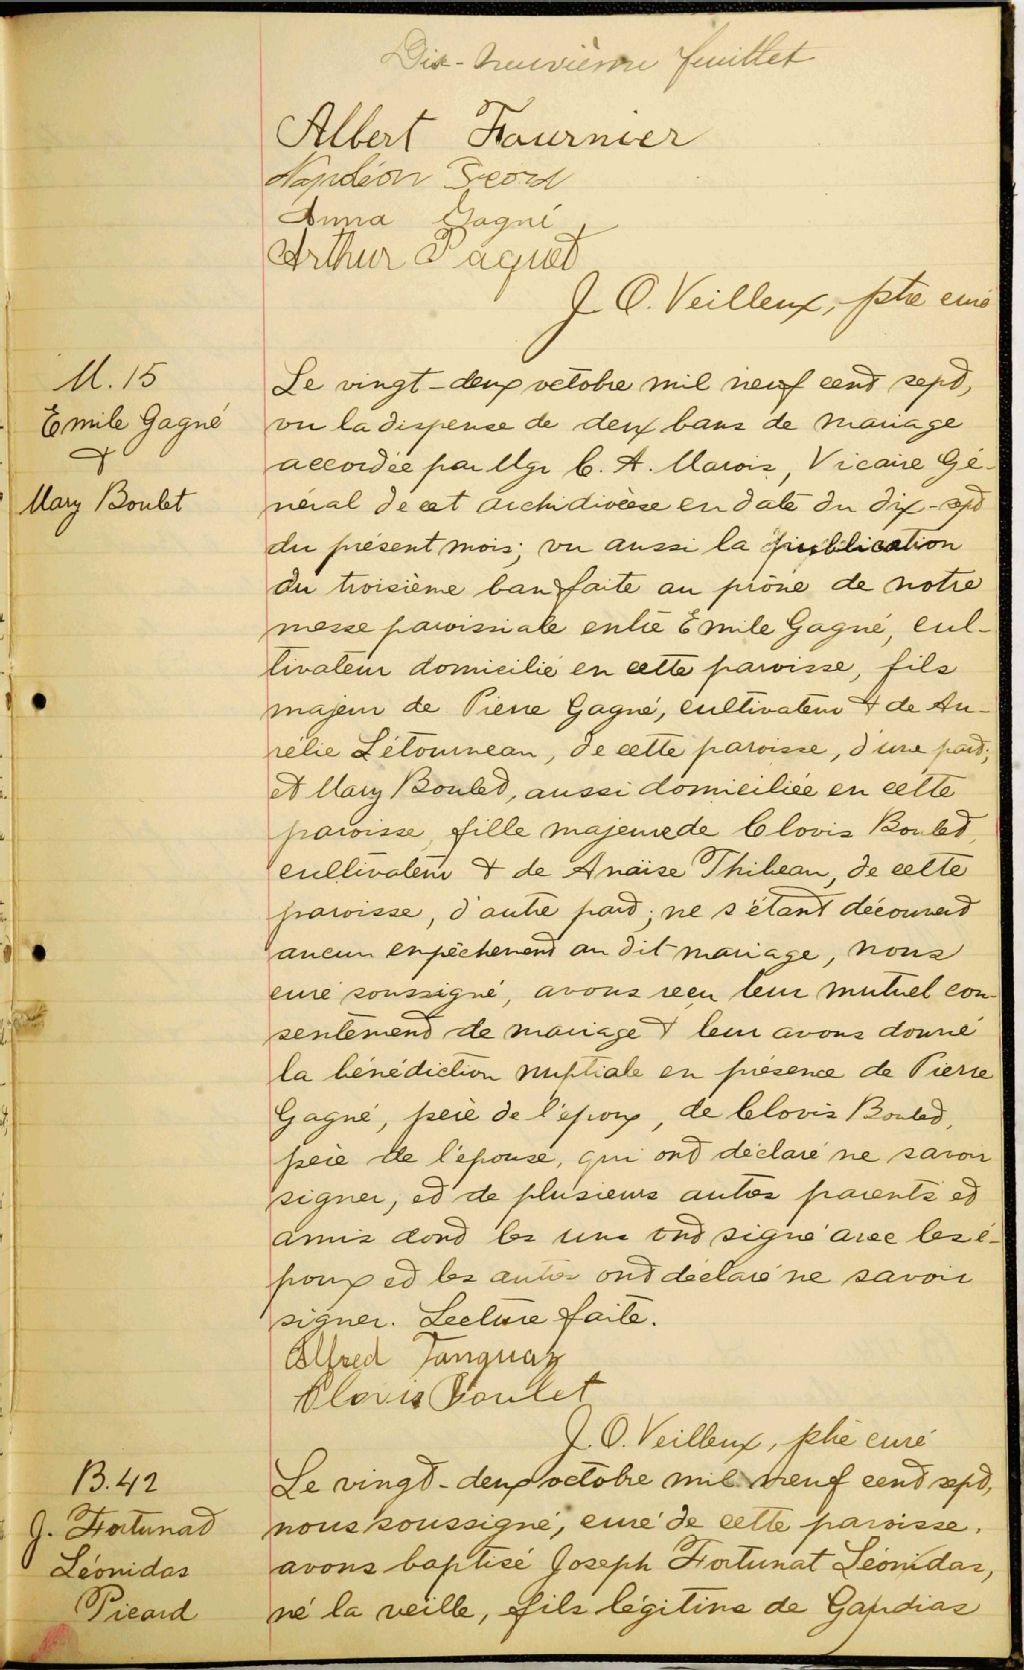 Dix-neuvième feuillet
Albert Fournier
Napoléon
Anna Gagné
Arthur Paquet
J. O. Veilleux, ptre curé
M. 15
Emile Gagné
&
Mary Boulet
Le vingt-deux octobre mil neuf cent sept,
vu la dispense de deux bans de mariage
accordée par Mgr C. A. Marois, Vicaire Gé-
néral de cet archidiocèse en date du dix-sept
du présent mois; vu aussi la publication
du troisième ban faite au prône de notre
messe paroissiale entre Emile Gagné, cul-
tivateur domicilié en cette paroisse, fils
majeur de Pierre Gagné, cultivateur & de Au-
rélie Létourneau, de cette paroisse, d'une part;
et Mary Boulet, aussi domiciliée en cette
paroisse, fille majeure de Clovis Boulet,
cultivateur & de Anaïse Thibeau, de cette
paroisse, d'autre part; ne s'étant découvert
aucun enpêchement au dit mariage, nous
curé soussigné, avons reçu leur mutuel con-
sentement de mariage & leur avons donné
la bénédiction nuptiale en présence de Pierre
Gagné, père de l'époux, de Clovis Boulet,
père de l'épouse, qui ont déclaré ne savoir
signer, et de plusieurs autres parents et
amis dont les uns ont signé avec les é-
poux et les autres ont déclaré ne savoir
signer. Lecture faite.
Alfred Tanguay
Clovis Boulet
J. O. Veilleux, ptre curé
B. 42
J. Fortunat
Léonidas
Picard
Le vingt-deux octobre mil neuf cent sept,
nous soussigné, curé de cette paroisse,
avons baptisé Joseph Fortunat Léonidas,
né la veille, fils légitime de Gaudias